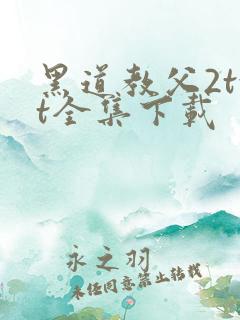 黑道教父2tx
t全集下载
永之羽
未经同意禁止转载